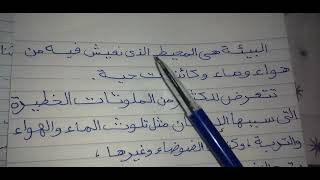 البيئة هى المحيط الذى نعيش فيه من
هواء وماء وكائنات حية.
تتعرض للكثير من الملوثات الخطيرة
التى سببها الإنسان مثل تلوث الماء والهواء
والتربة ، وكذلك الضوضاء وغيرها ،